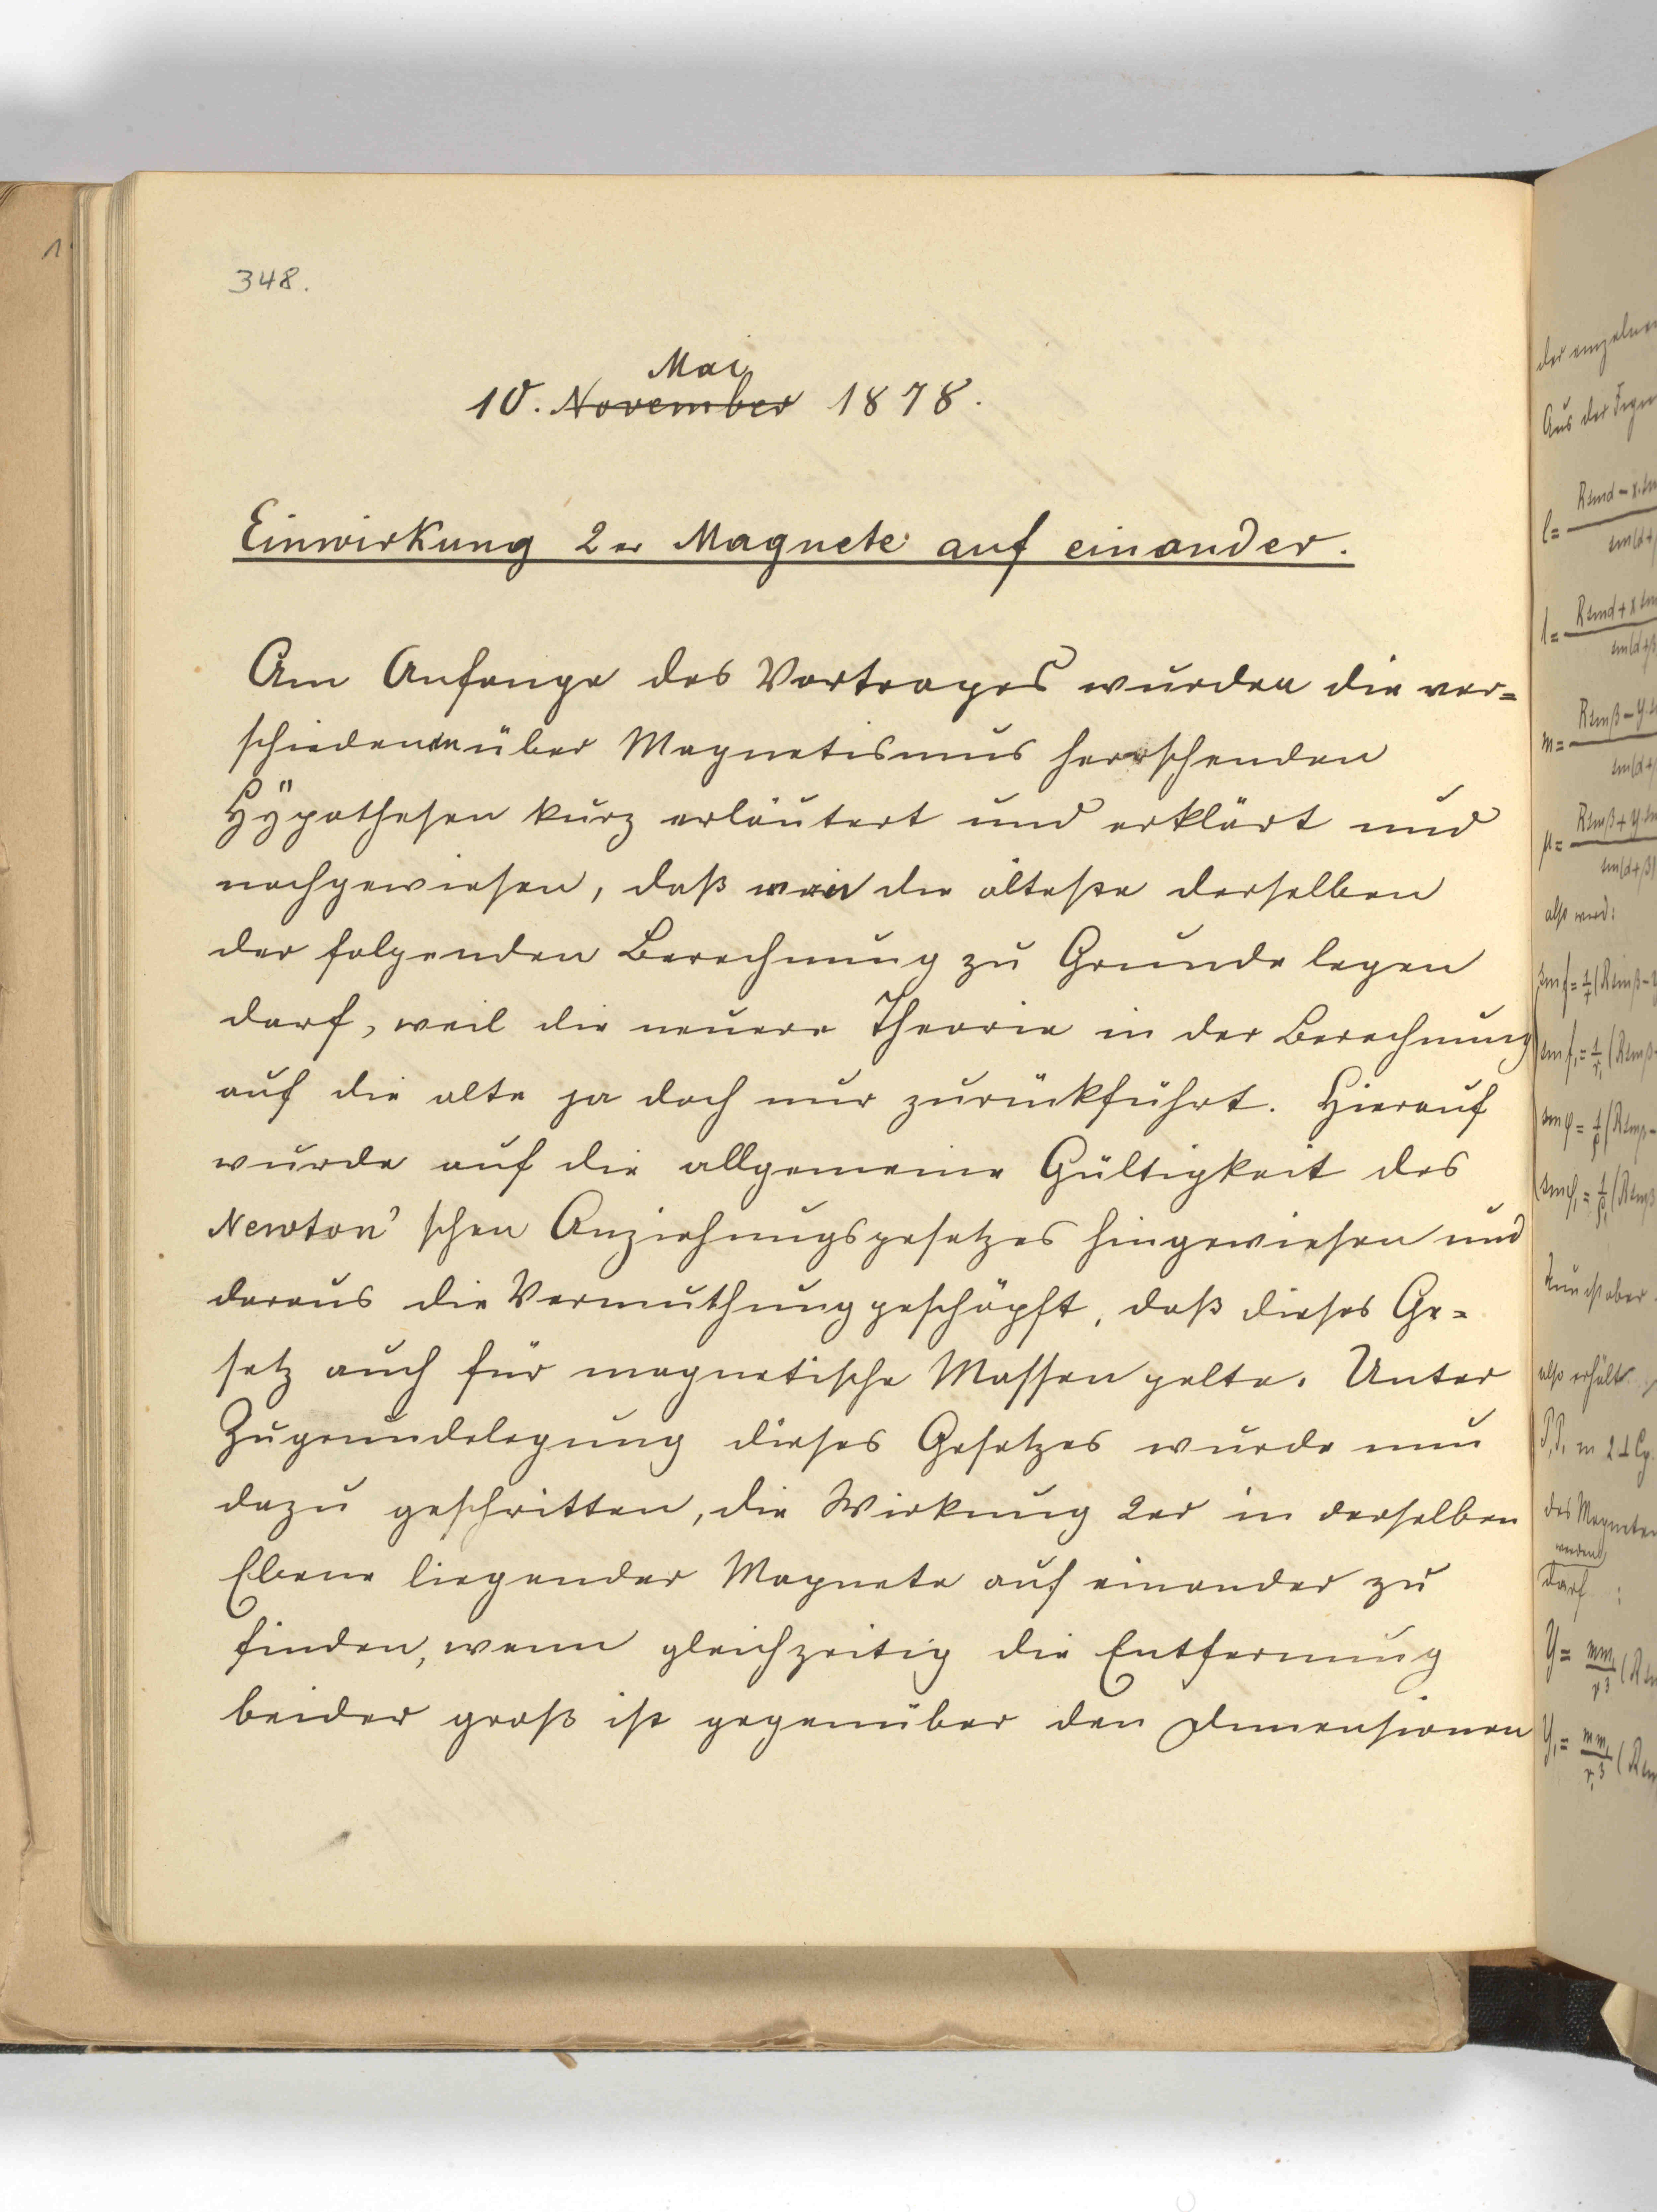 348.
Mai
10. November 1878.
Einwirkung 2er Magnete auf einander.
Am Anfange des Vortrages wurden die ver=
schiedenen über Magnetismus herrschenden
Hÿpothesen kurz erläutert und erklärt und
nachgewiesen, daß man die älteste derselben
der folgenden Berechnung zu Grunde legen
darf, weil die neuere Theorie in der Berechnung
auf die alte ja doch nur zurückführt. Hierauf
wurde auf die allgemeine Gültigkeit des
Newton'schen Anziehungsgesetzes hingewiesen und
daraus die Vermuthung geschöpft, daß dieses Ge=
setz auch für magnetische Massen gelte. Unter
Zugrundelegung dieses Gesetzes wurde nun
dazu geschritten, die Wirkung 2er in derselben
Ebene liegender Magnete auf einander zu
finden, wenn gleichzeitig die Entfernung
beider groß ist gegenüber den Dimensionen
1
der einzelnen
Aus der
also wird:
also erhält
des Magneten
werden
darf :